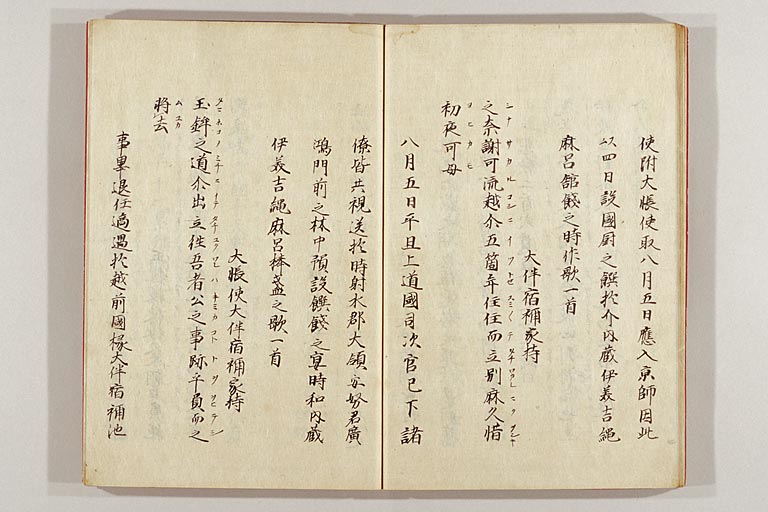 使附大帳使取八月五日應入京師因此
以四日設國厨之饌於介内蔵伊美吉縄
麻呂舘餞之時作歌一首
大伴宿祢家持
シナサカル コシニイツトセ
之奈謝可流越尒五箇年住住而立別麻久惜
ヨヒカモ
初夜可毋
八月五日平旦上道國司次官已下諸
僚皆共視送於時射水郡大領安努君廣
鴻門前之林中預設饌餞之宴時和内蔵
伊美吉縄麻呂捧盞之歌一首
大帳使大伴宿祢家持
玉鉾之道尒出立徃吾者公之事跡乎負而之
将去
事畢退任適遇於越前國掾大伴宿祢池